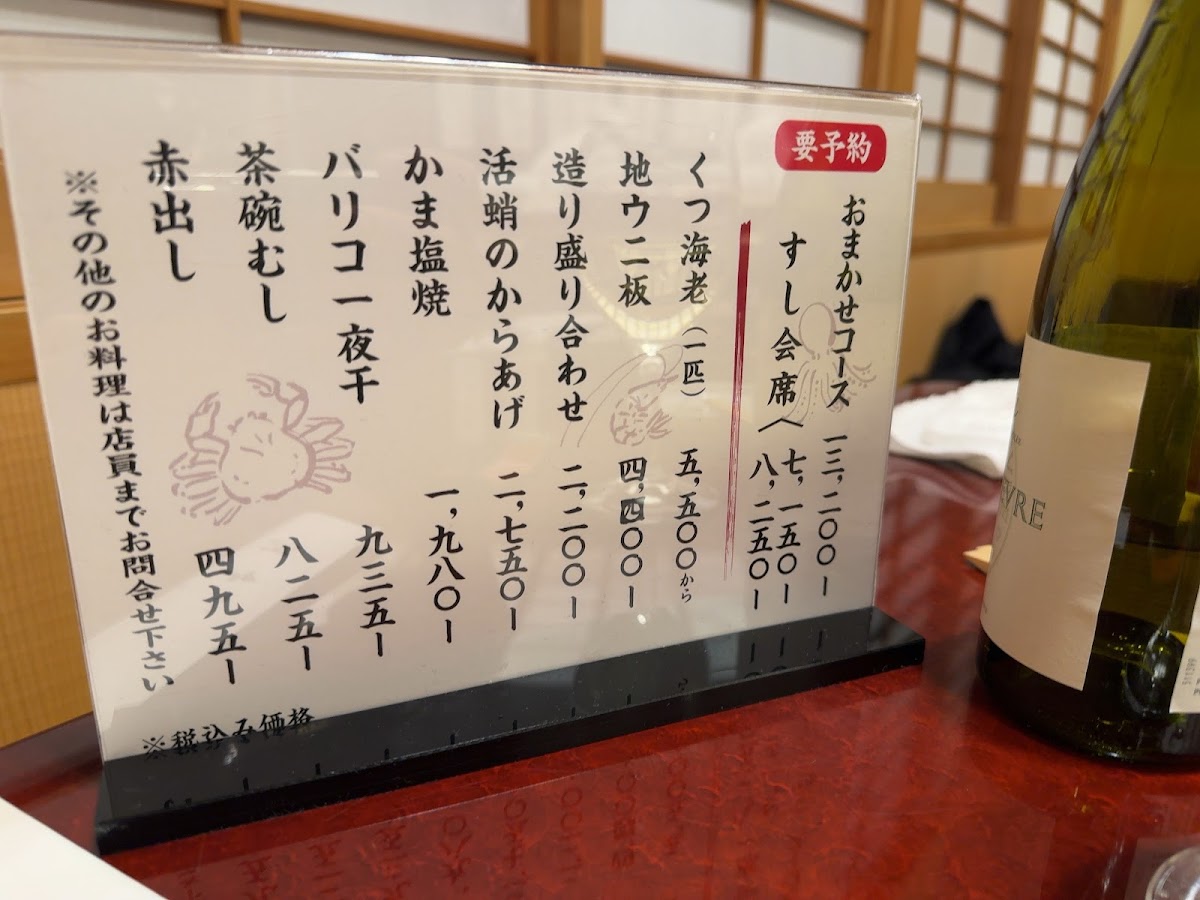 要予約
おまかせコース 一三,二〇〇ー
すし会席 七,一五〇ー
八,二五〇ー
くつ海老(一匹) 五,五〇〇から
地ウニ板 四,四〇〇ー
造り盛り合わせ 二,二〇〇ー
活蛸のからあげ 二,七五〇ー
かま塩焼 一,九八〇ー
バリコ一夜干 九三五ー
茶碗むし 八二五ー
赤出し 四九五ー
※その他のお料理は店員までお問合せ下さい
※税込み価格